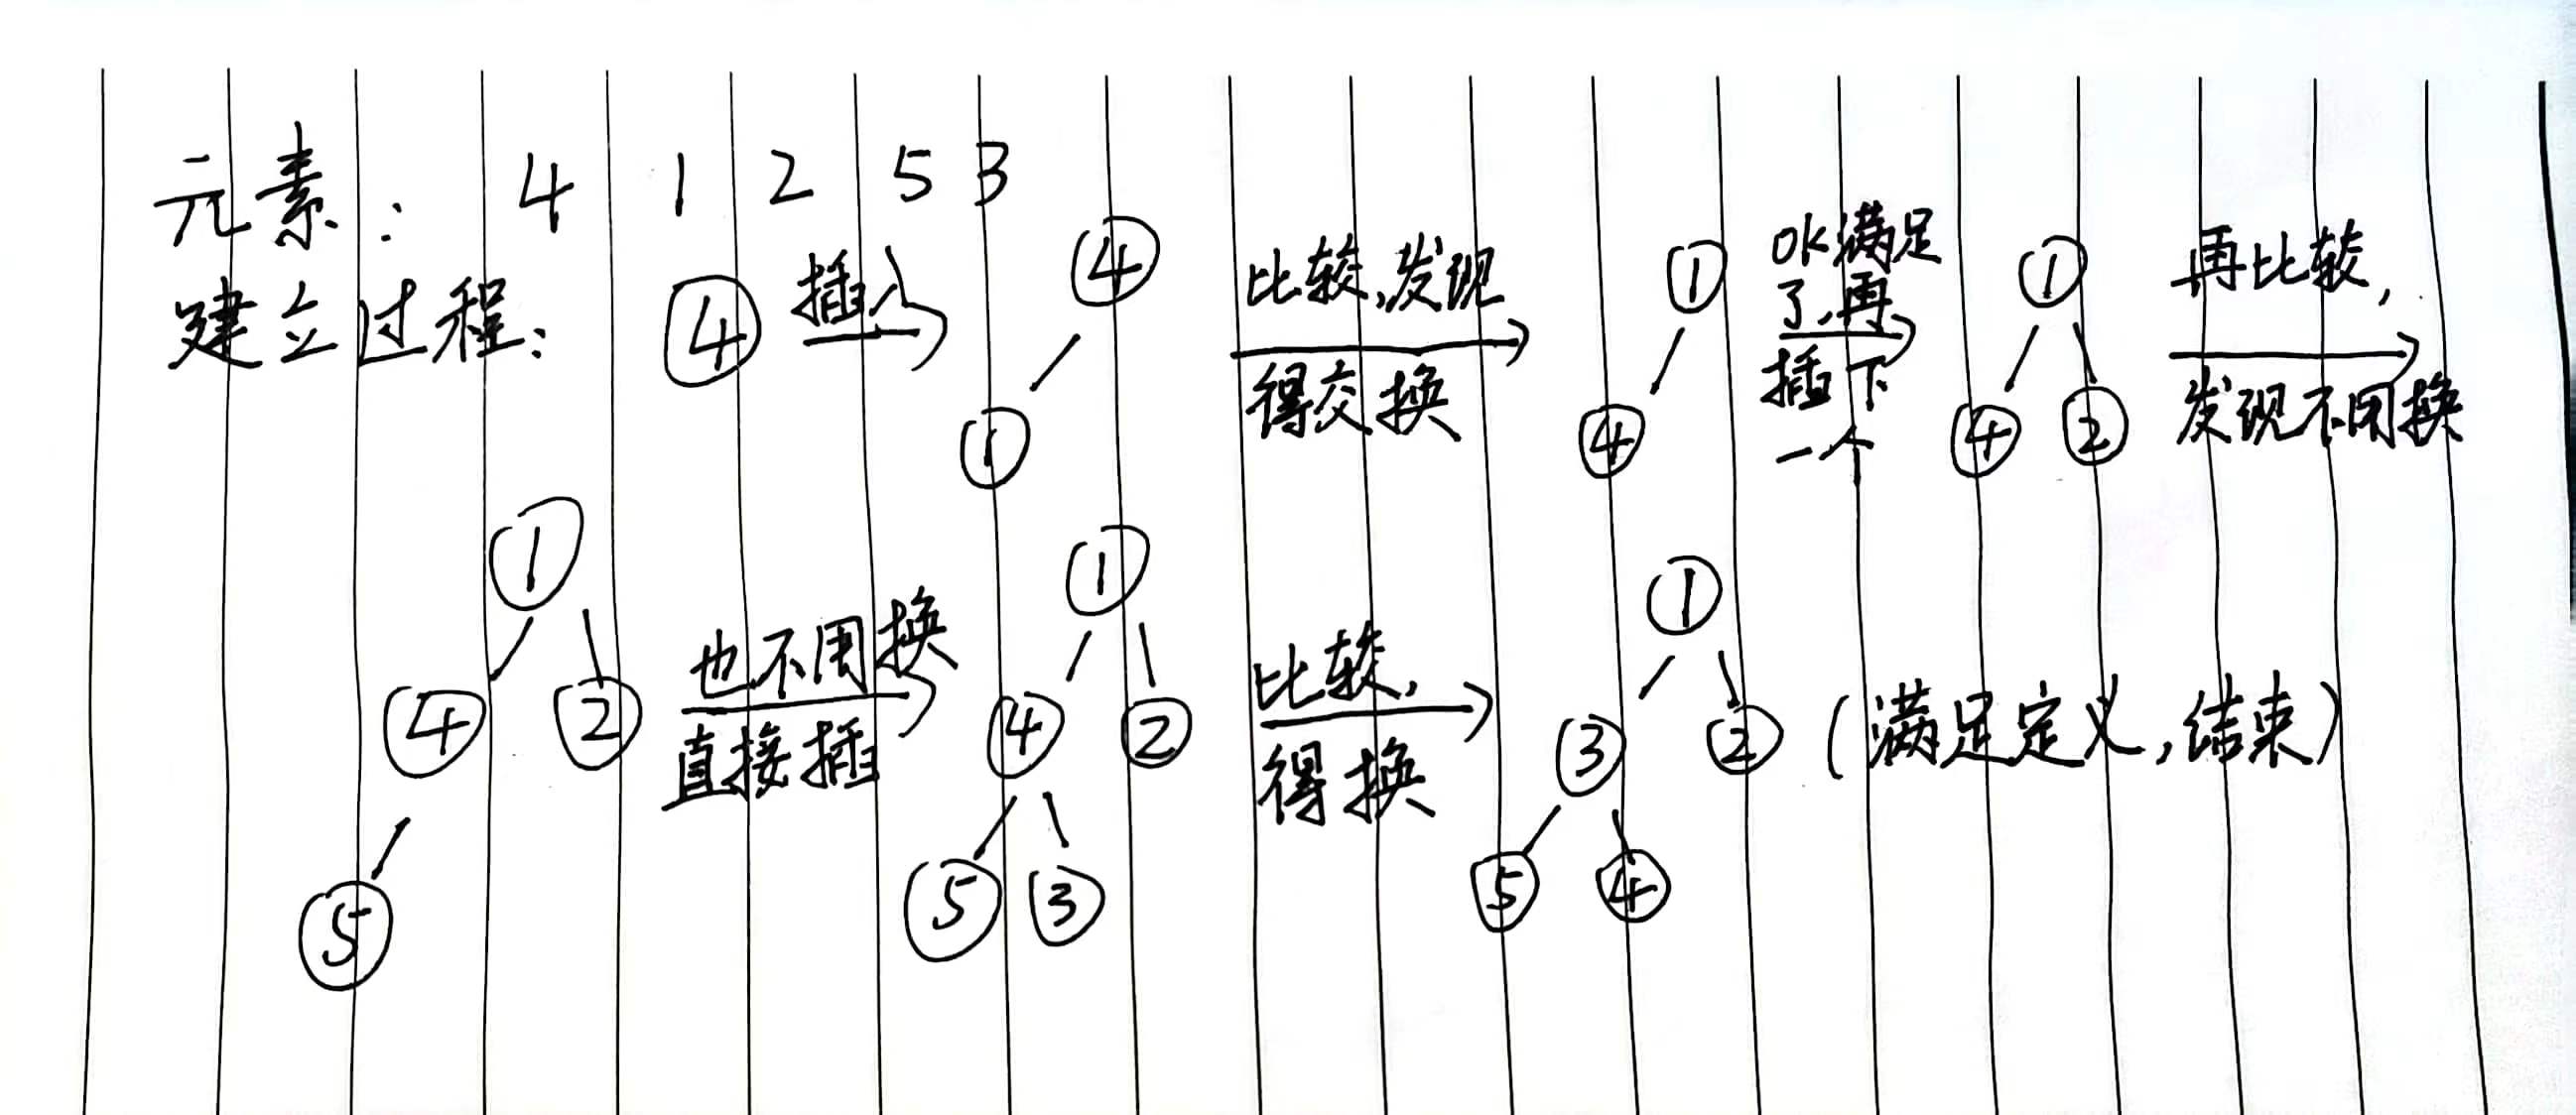 元素: 4 1 2 5 3
建立过程:
④ 插入
④
①
比较,发现
得交换
①
④
OK满足
了,再
插下
一个
①
④ ②
再比较,
发现不用换
①
④ ②
⑤
也不用换
直接插
①
④ ②
⑤ ③
比较,
得换
①
③ ②
⑤ ④
(满足定义,结束)